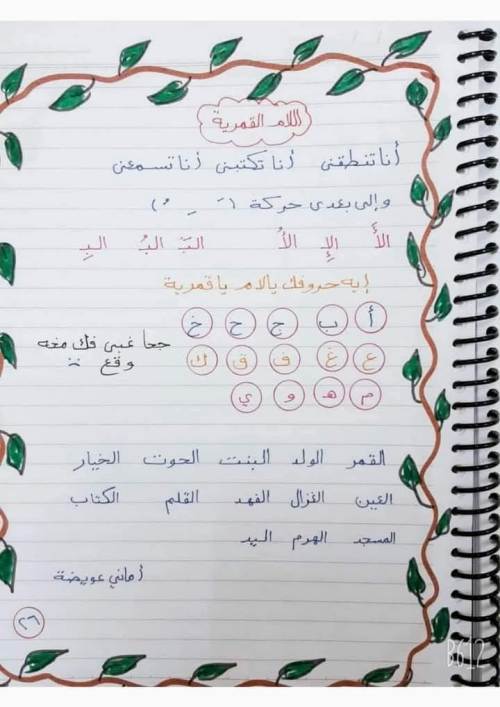 اللام القمرية
أنا تنطقنى أنا تكتبنى أنا تسمعنى
وإلى بعدى حركة (َ ِ ُ)
الأَ الإِ الأُ البَ البُ البِ
إيه حروفك يالام يا قمرية
أ ب ج ح خ
ع غ ف ق ك
جحا غبى فك مخه
وقع
م ه و ي
القمر الولد البنت الحوت الخيار
العين الغزال الفهد القلم الكتاب
المسجد الهرم اليد
أماني عويضة
٢٦
B612